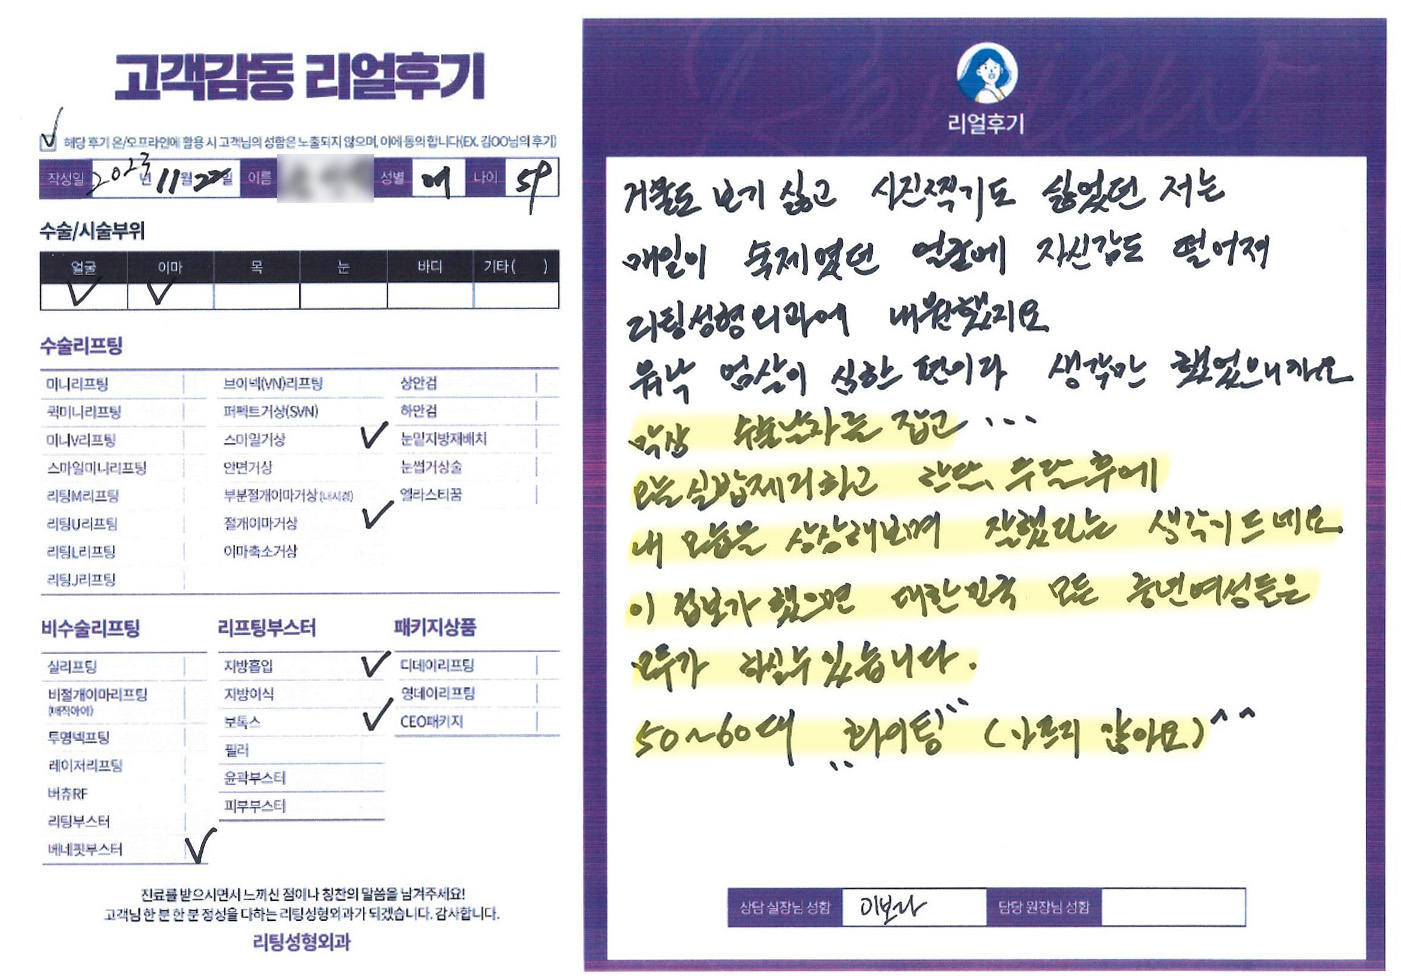 고객감동 리얼후기
해당 후기 온/오프라인에 활용 시 고객님의 성함은 노출되지 않으며, 이에 동의 합니다(EX. 김OO님의 후기)
작성일 2023년 11월 22일 이름 성별 여 나이 59
수술/시술부위
얼굴 이마 목 눈 바디 기타( )
수술리프팅
미니리프팅
퀵미니리프팅
미니V리프팅
스마일미니리프팅
리팅M리프팅
리팅U리프팅
리팅L리프팅
리팅J리프팅
브이넥(VN)리프팅
퍼펙트거상(SVN)
스마일거상
안면거상
부분절개이마거상(내시경)
절개이마거상
이마축소거상
상안검
하안검
눈밑지방재배치
눈썹거상술
엘라스티꿈
비수술리프팅
실리프팅
비절개이마리프팅
(매직아이)
투명넥프팅
레이저리프팅
버츄RF
리팅부스터
베네핏부스터
리프팅부스터
지방흡입
지방이식
보톡스
필러
윤곽부스터
피부부스터
패키지상품
디데이리프팅
영데이리프팅
CEO패키지
진료를 받으시면서 느끼신 점이나 칭찬의 말씀을 남겨주세요!
고객님 한 분 한 분 정성을 다하는 리팅성형외과가 되겠습니다. 감사합니다.
리팅성형외과
리얼후기
거울도 보기 싫고 사진찍기도 싫었던 저는
매일이 숙제였던 얼굴에 자신감도 떨어져
리팅성형외과에 내원했지요
워낙 엄살이 심한 편이라 생각만 했었으니까요
막상 수술날자를 잡고 ...
오늘 실밥제거하고 한달, 두달 후에
내 모습을 상상해보며 잘했다는 생각이 드네요
이 정보가 했으면 대한민국 모든 중년여성들은
모두가 하실수 있습니다.
50~60대 "화이팅" (아프지 않아요)^^
상담 실장님 성함 이보라 담당 원장님 성함